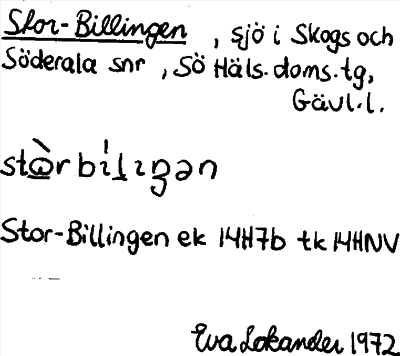 Stor-Billingen , sjö i Skogs och
Söderala snr , Sö Häls. doms. tg,
Gävl. l.
stὼrbílıŋən
Stor-Billingen ek 14H7b tk 14HNV
Eva Lokander 1972